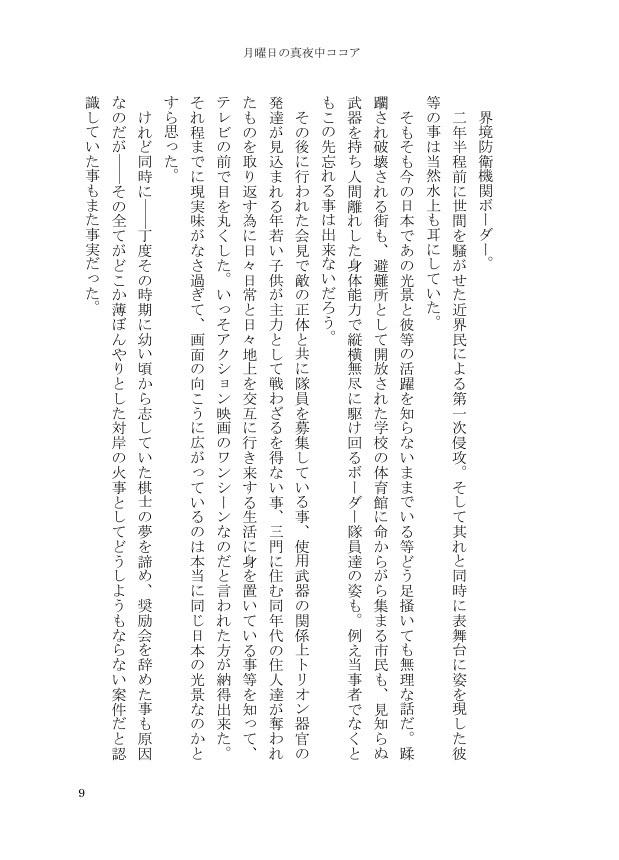 月曜日の真夜中ココア
界境防衛機関ボーダー。
二年半程前に世間を騒がせた近界民による第一次侵攻。そして其れと同時に表舞台に姿を現した彼
等の事は当然水上も耳にしていた。
そもそも今の日本であの光景と彼等の活躍を知らないままでいる等どう足掻いても無理な話だ。蹂
躙され破壊される街も、避難所として開放された学校の体育館に命からがら集まる市民も、見知らぬ
武器を持ち人間離れした身体能力で縦横無尽に駆け回るボーダー隊員達の姿も。例え当事者でなくと
もこの先忘れる事は出来ないだろう。
その後に行われた会見で敵の正体と共に隊員を募集している事、使用武器の関係上トリオン器官の
発達が見込まれる年若い子供が主力として戦わざるを得ない事、三門に住む同年代の住人達が奪われ
たものを取り返す為に日々日常と日々地上を交互に行き来する生活に身を置いている事等を知って、
テレビの前で目を丸くした。いっそアクション映画のワンシーンなのだと言われた方が納得出来た。
それ程までに現実味がなさ過ぎて、画面の向こうに広がっているのは本当に同じ日本の光景なのかと
すら思った。
けれど同時に――丁度その時期に幼い頃から志していた棋士の夢を諦め、奨励会を辞めた事も原因
なのだが――その全てがどこか薄ぼんやりとした対岸の火事としてどうしようもならない案件だと認
識していた事もまた事実だった。
9